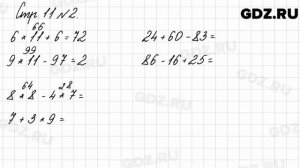 GDZ.RU
Стр. 11 №2.
66
6 * 11 + 6 = 72
99
9 * 11 - 97 = 2
64 28
8 * 8 - 4 * 7 =
7 + 3 * 9 =
24 + 60 - 83 =
86 - 16 + 25 =